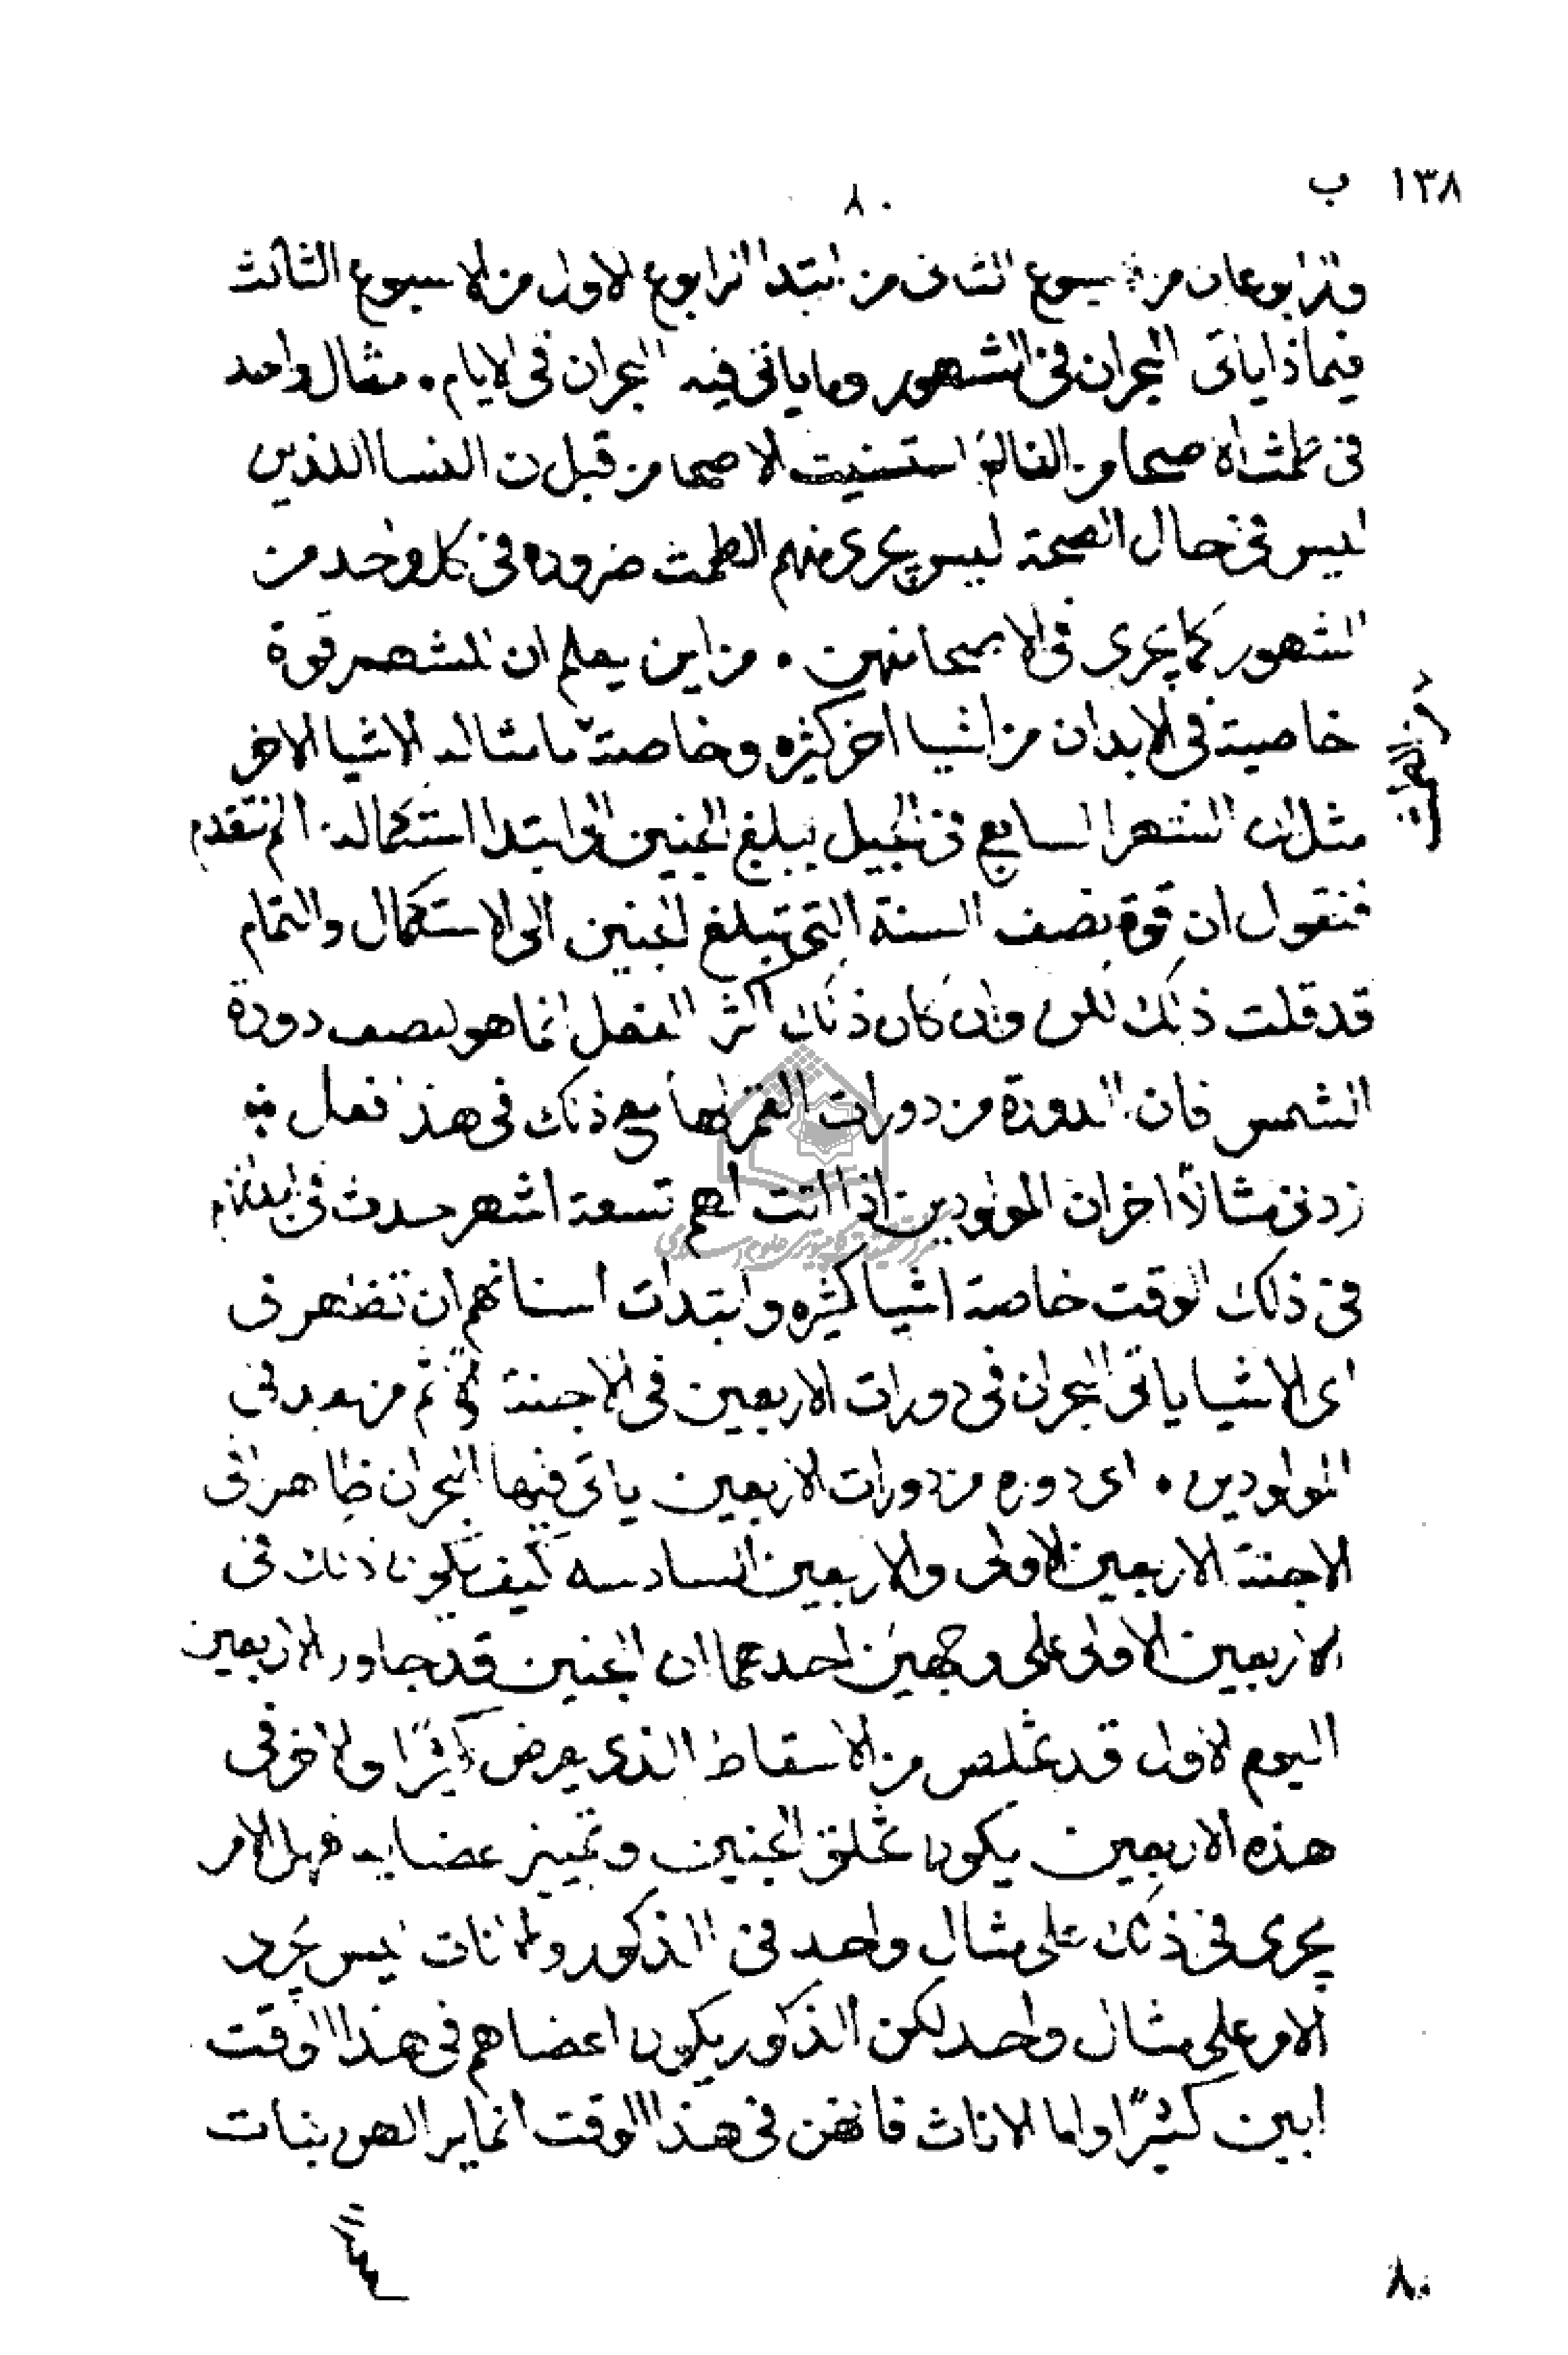 ١٣٨ ب
٨٠
والرابوعان من الاسبوع الثانى من ابتدا الرابوع الاول من الاسبوع الثالث
فيماذا ياتى البحران فى الشهور وما ياتى فيه البحران فى الايام • مثال واحد
فى طمث صحا من استسنيت لا صحا من قبل ن النسا اللذين
ليس فى حال الصحة ليس يجرى منهم الطمث ضروره فى كل واحد من
الشهور كما يجرى فى الاصحا منهن • من اين يعلم ان للشهر قوة
خاصية فى الابدان من اشيا اخر كثيره وخاصة الاشيا الاخر
مثل ان الشهر السابع فى الحبل يبلغ الجنين الى ابتدا استكماله الم تتقدم
فتقول ان قوة نصف السنة التى تبلغ الجنين الى الاستكمال والتمام
قد قلت ذلك لكن وان كان ذلك اكثر الفعل انما هو لنصف دورة
الشمس فان الدورة من دورات القمر لها مع ذلك فى هذا فعل
زدنى مثالاً اخر ان المولودين اذا اتت لهم تسعة اشهر حدث فى ابدانهم
فى ذلك الوقت خاصة اشيا كثيره وابتدات اسنانهم ان تضهر فى
اى الاشيا ياتى البحران فى دورات الاربعين فى الاجنة ثم من بعد فى
المولودين • اى دوره من دورات الاربعين ياتى فيها البحران ظاهرا فى
الاجنة الاربعين الاولى والاربعين السادسه كيف يكون ذلك فى
الاربعين الاولى على وجهين احدهما ان الجنين قد جاوز الاربعين
اليوم الاول قد تخلص من الاسقاط الذى يعرض كثيرًا والاخر فى
هذه الاربعين يكون تخلق الجنين وتمييز عضايه فهل الامر
يجرى فى ذلك على مثال واحد فى الذكور والاناث ليس يجرى
الامر على مثال واحد لكن الذكور يكون اعضاهم فى هذا الوقت
ابين كثيرًا واما الاناث فانهن فى هذا الوقت انما يرا لهن نبات
٨٠